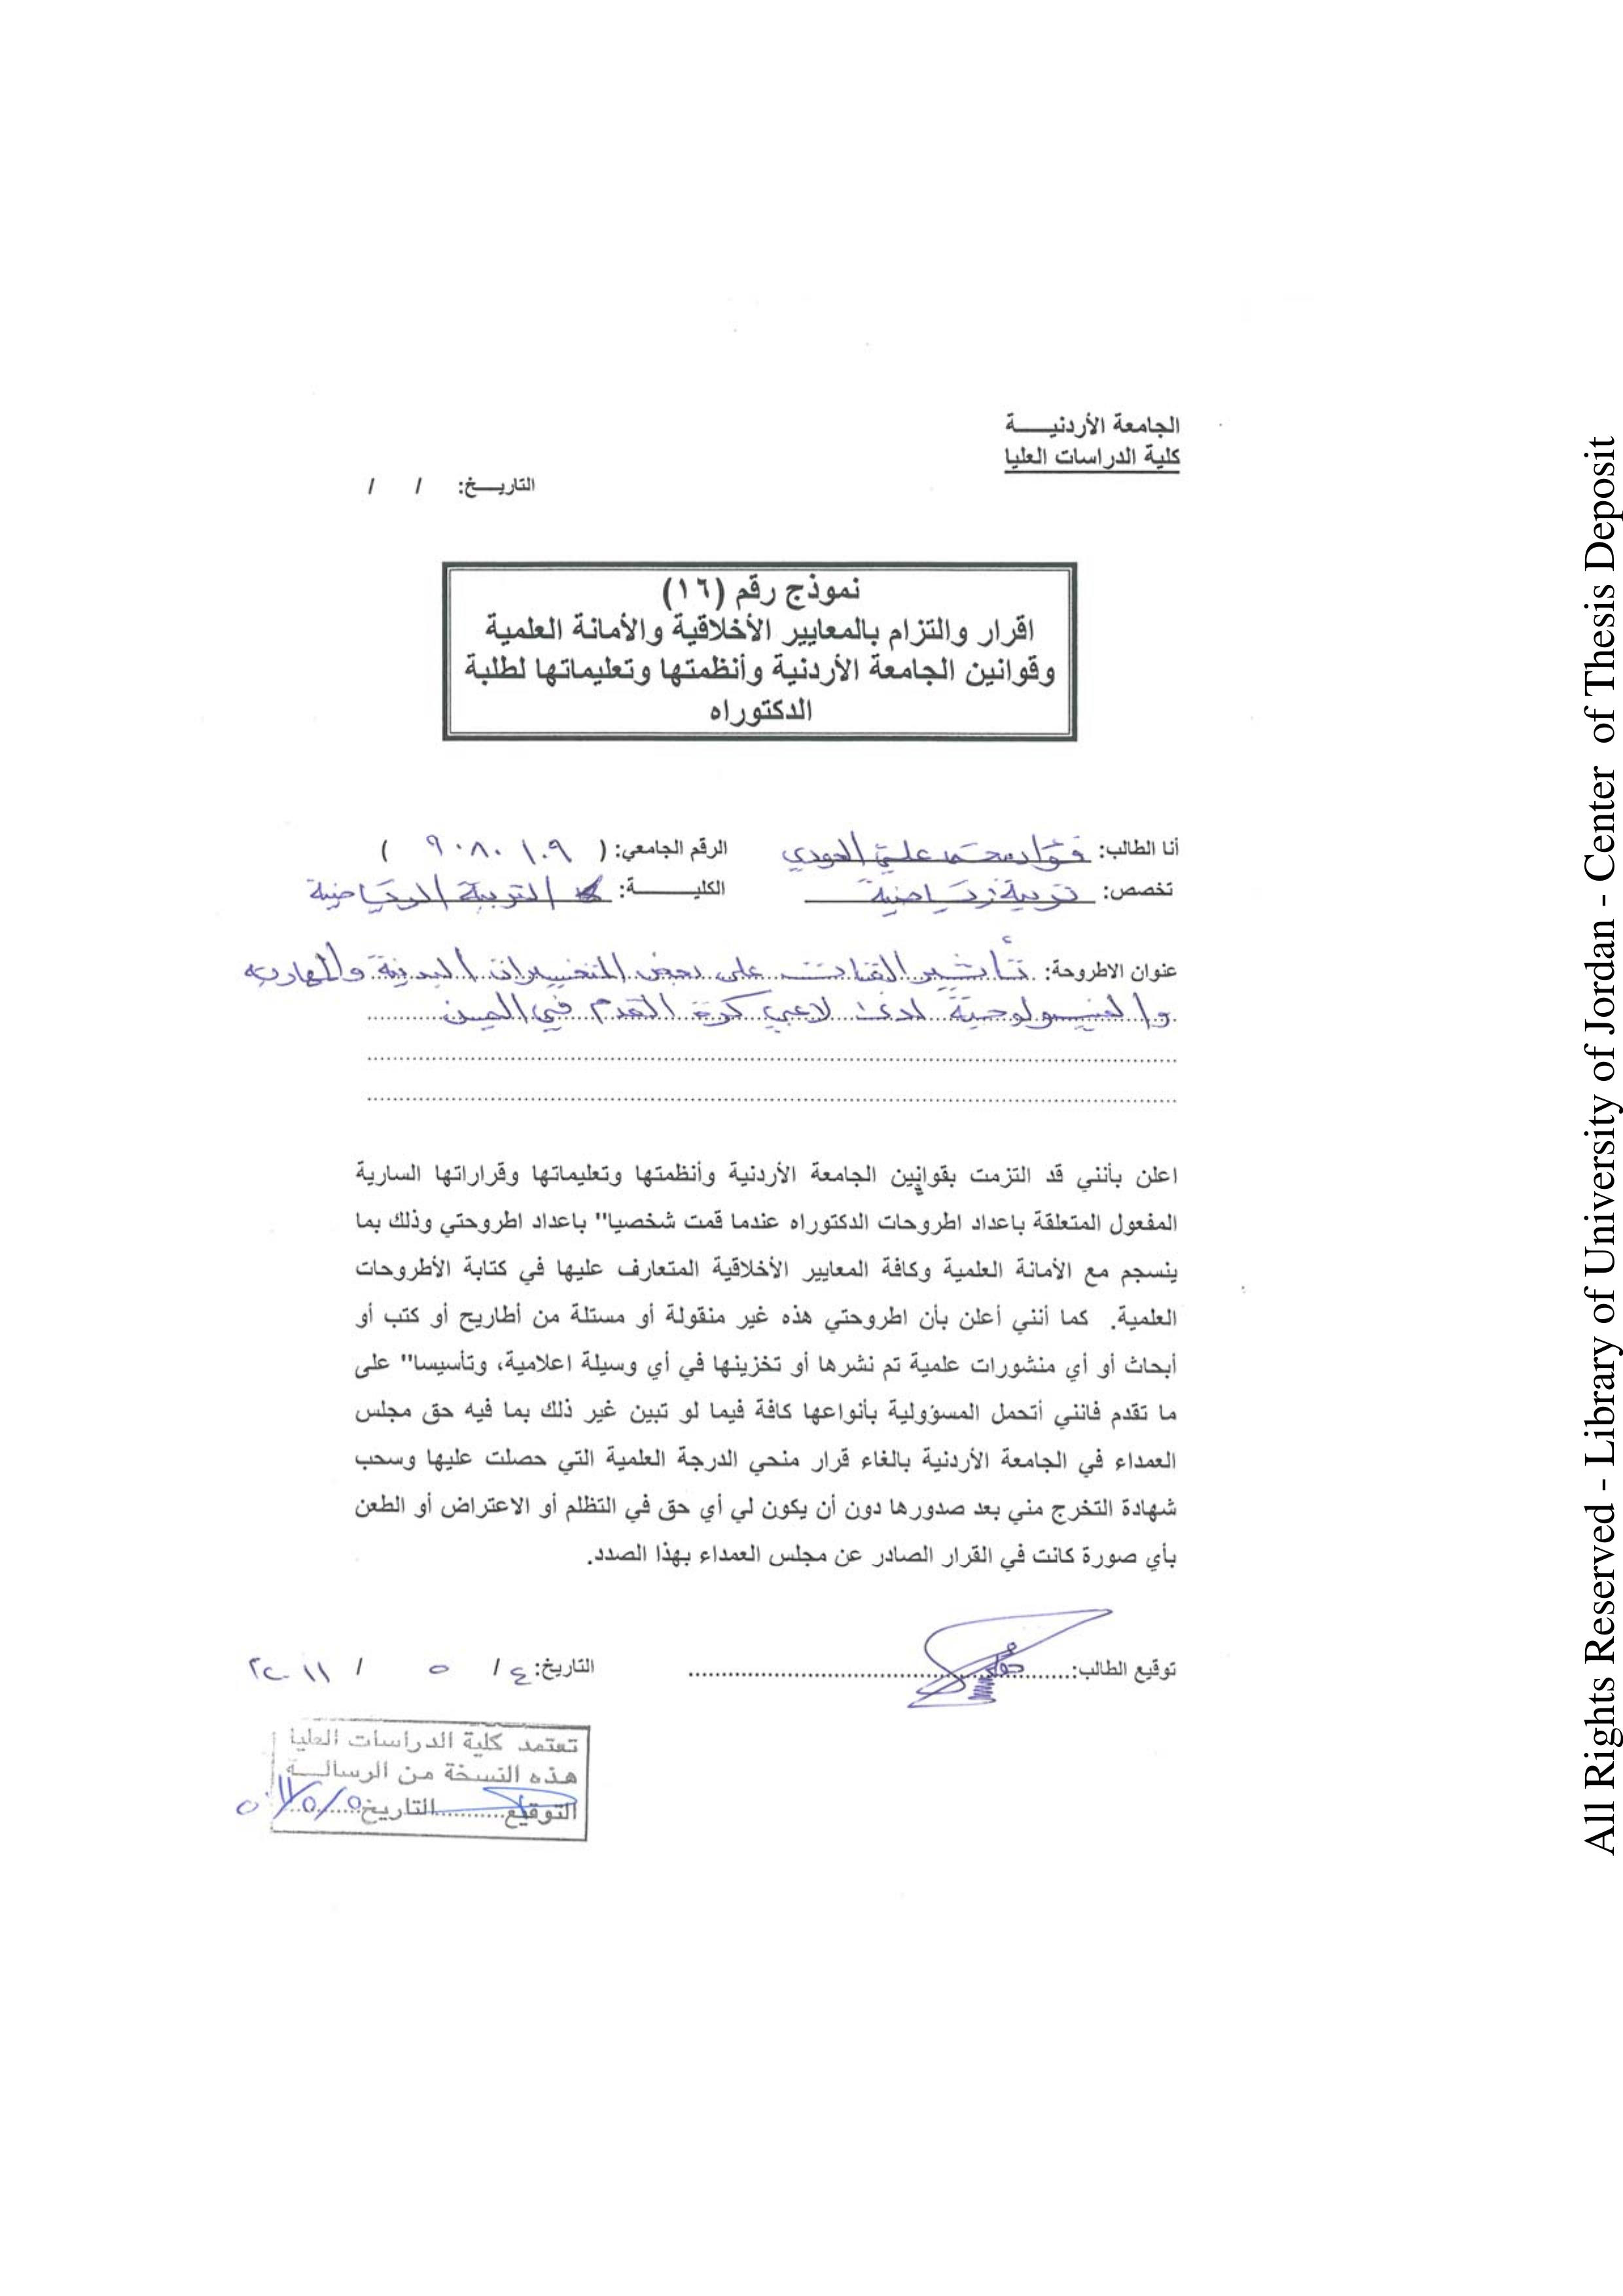 الجامعة الأردنيــــة
كلية الدراسات العليا
التاريــخ: / /
نموذج رقم (١٦)
اقرار والتزام بالمعايير الأخلاقية والأمانة العلمية
وقوانين الجامعة الأردنية وأنظمتها وتعليماتها لطلبة
الدكتوراه
أنا الطالب: فؤاد محمد علي العودي الرقم الجامعي: ( ٩٠٨٠١٠٩ )
تخصص: تربية رياضية الكليـــــــة: التربية الرياضية
عنوان الاطروحة: تأثير القات على بعض المتغيرات البدنية والمهارية
والفسيولوجية لدى لاعبي كرة القدم في اليمن
اعلن بأنني قد التزمت بقوانين الجامعة الأردنية وأنظمتها وتعليماتها وقراراتها السارية
المفعول المتعلقة باعداد اطروحات الدكتوراه عندما قمت شخصيا" باعداد اطروحتي وذلك بما
ينسجم مع الأمانة العلمية وكافة المعايير الأخلاقية المتعارف عليها في كتابة الأطروحات
العلمية. كما أنني أعلن بأن اطروحتي هذه غير منقولة أو مستلة من أطاريح أو كتب أو
أبحاث أو أي منشورات علمية تم نشرها أو تخزينها في أي وسيلة اعلامية، وتأسيسا" على
ما تقدم فانني أتحمل المسؤولية بأنواعها كافة فيما لو تبين غير ذلك بما فيه حق مجلس
العمداء في الجامعة الأردنية بالغاء قرار منحي الدرجة العلمية التي حصلت عليها وسحب
شهادة التخرج مني بعد صدورها دون أن يكون لي أي حق في التظلم أو الاعتراض أو الطعن
بأي صورة كانت في القرار الصادر عن مجلس العمداء بهذا الصدد.
توقيع الطالب: التاريخ: ٤ / ٥ / ٢٠١١م
تعتمد كلية الدراسات العليا
هذه النسخة من الرسالــة
التوقيع............التاريخ.........
All Rights Reserved - Library of University of Jordan - Center of Thesis Deposit